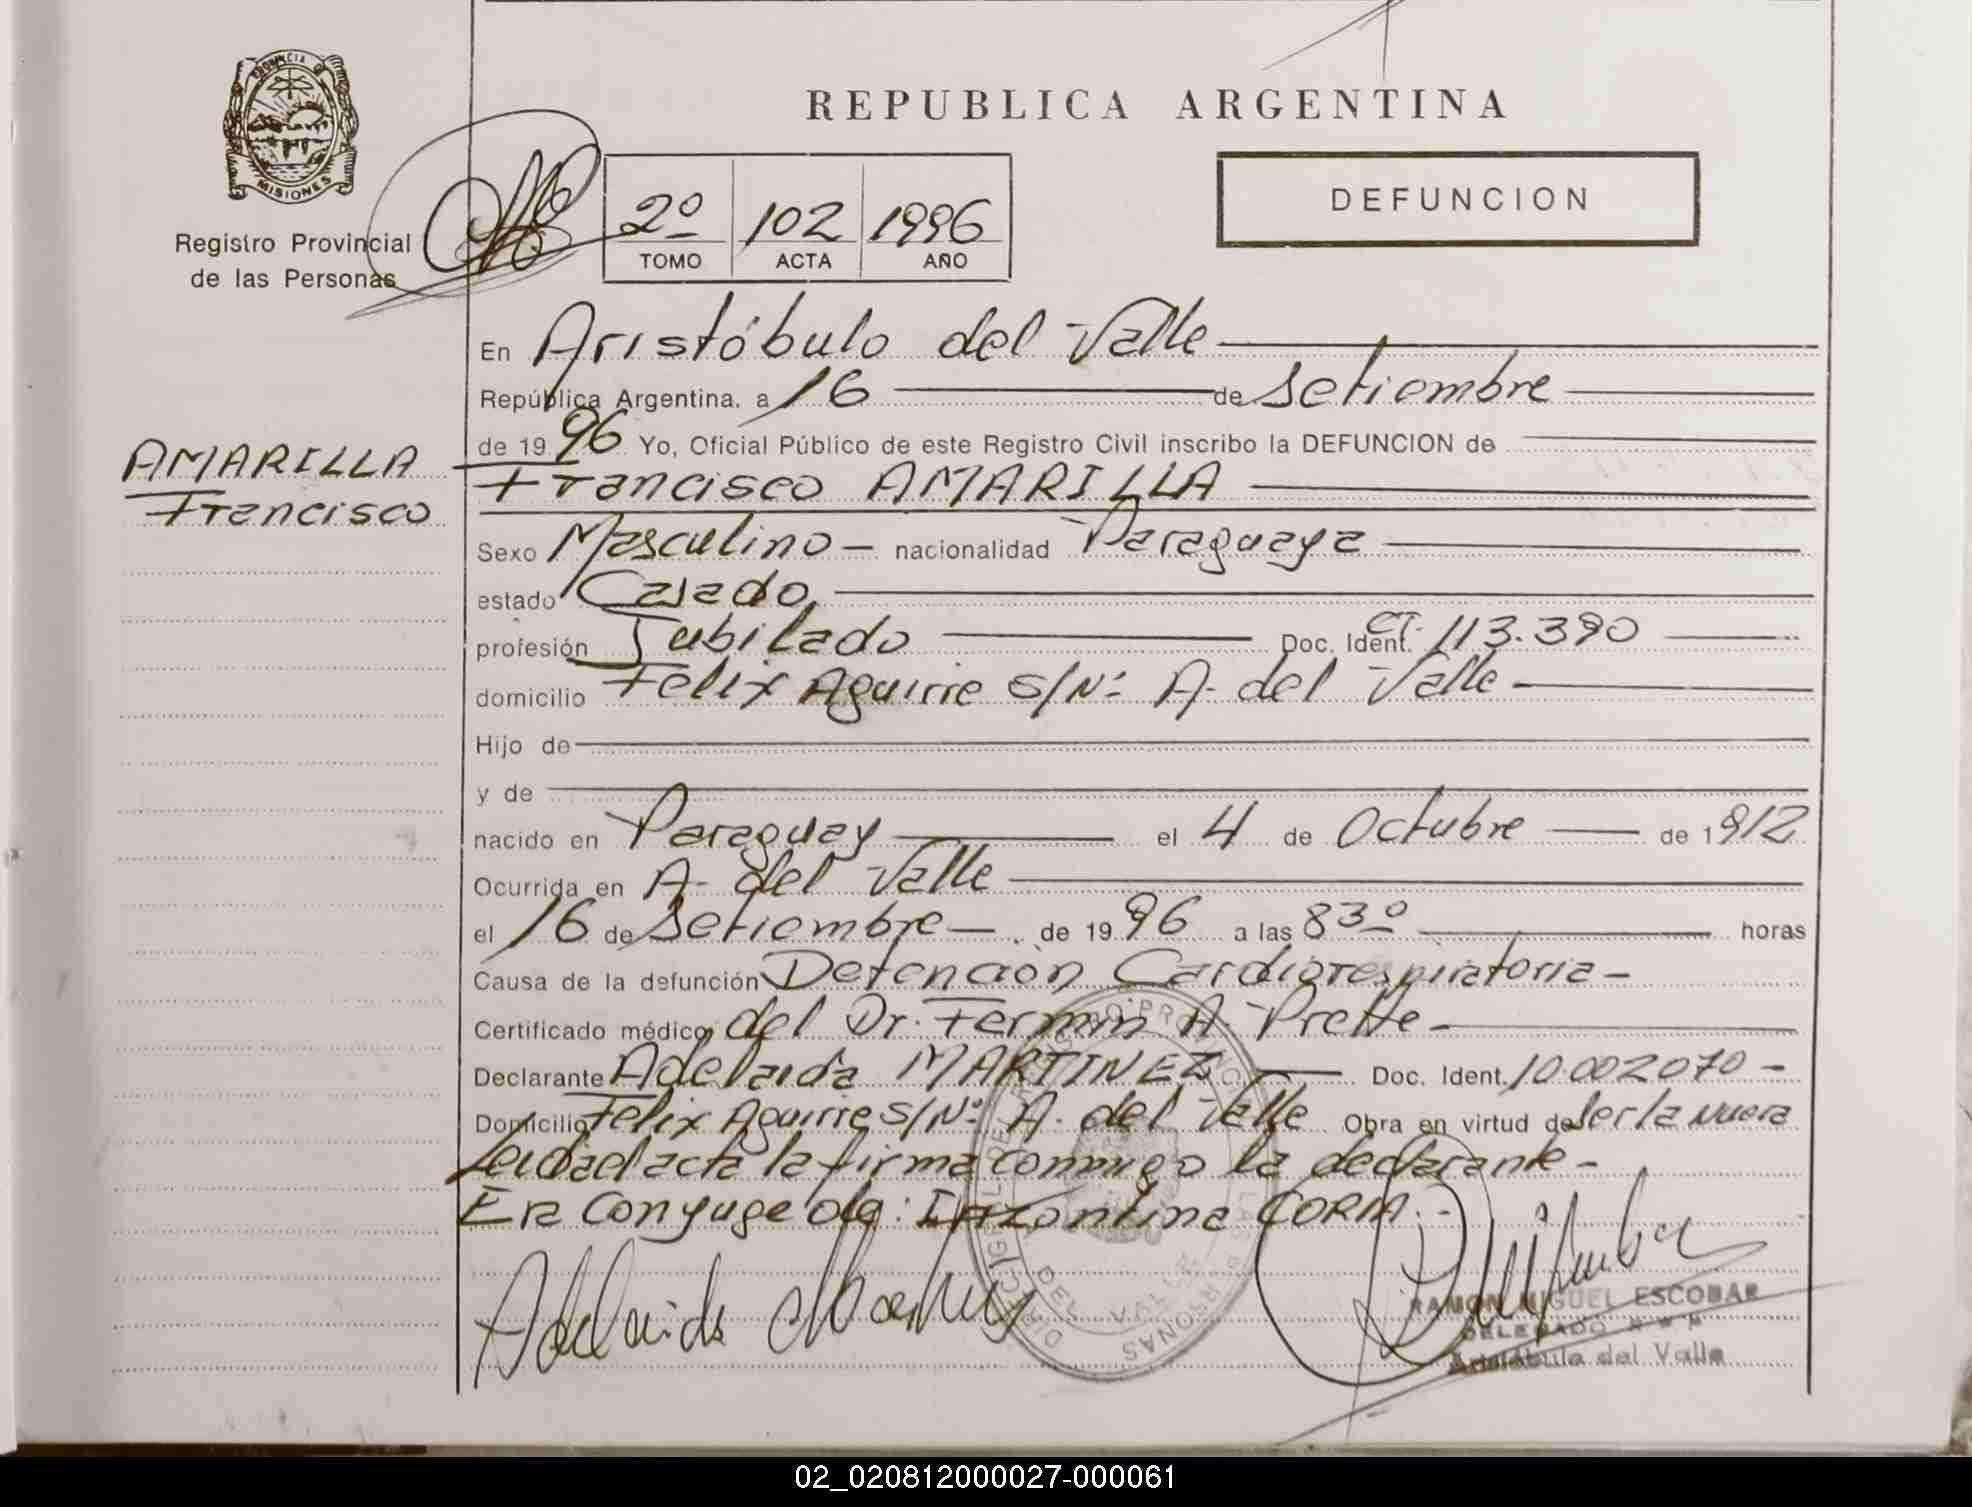 PROVINCIA DE
MISIONES
Registro Provincial
de las Personas
REPUBLICA ARGENTINA
2º 102 1996
TOMO ACTA AÑO
DEFUNCION
En Aristóbulo del Valle
República Argentina, a 16 de Setiembre
de 1996 Yo, Oficial Público de este Registro Civil inscribo la DEFUNCION de
AMARILLA
Francisco
Francisco AMARILLA
Sexo Masculino - nacionalidad Paraguaya
estado Casado
profesión Jubilado Doc. Ident. CI. 113.390
domicilio Felix Aguirre S/Nº A. del Valle
Hijo de
y de
nacido en Paraguay el 4 de Octubre de 1912
Ocurrida en A. del Valle
el 16 de Setiembre de 1996 a las 8 30 horas
Causa de la defunción Detención Cardiorespiratoria -
Certificado médico del Dr. Fermin A. Prette
Declarante Adelaida MARTINEZ Doc. Ident. 10.002070 -
Domicilio Felix Aguirre S/Nº A. del Valle Obra en virtud de ser la nuera
Leida el acta la firma conmigo la declarante -
Era Conyuge de: CORIA.-
Adelaida Martinez
RAMON MIGUEL ESCOBAR
DELEGADO R P P
Aristóbulo del Valle
02_020812000027-000061